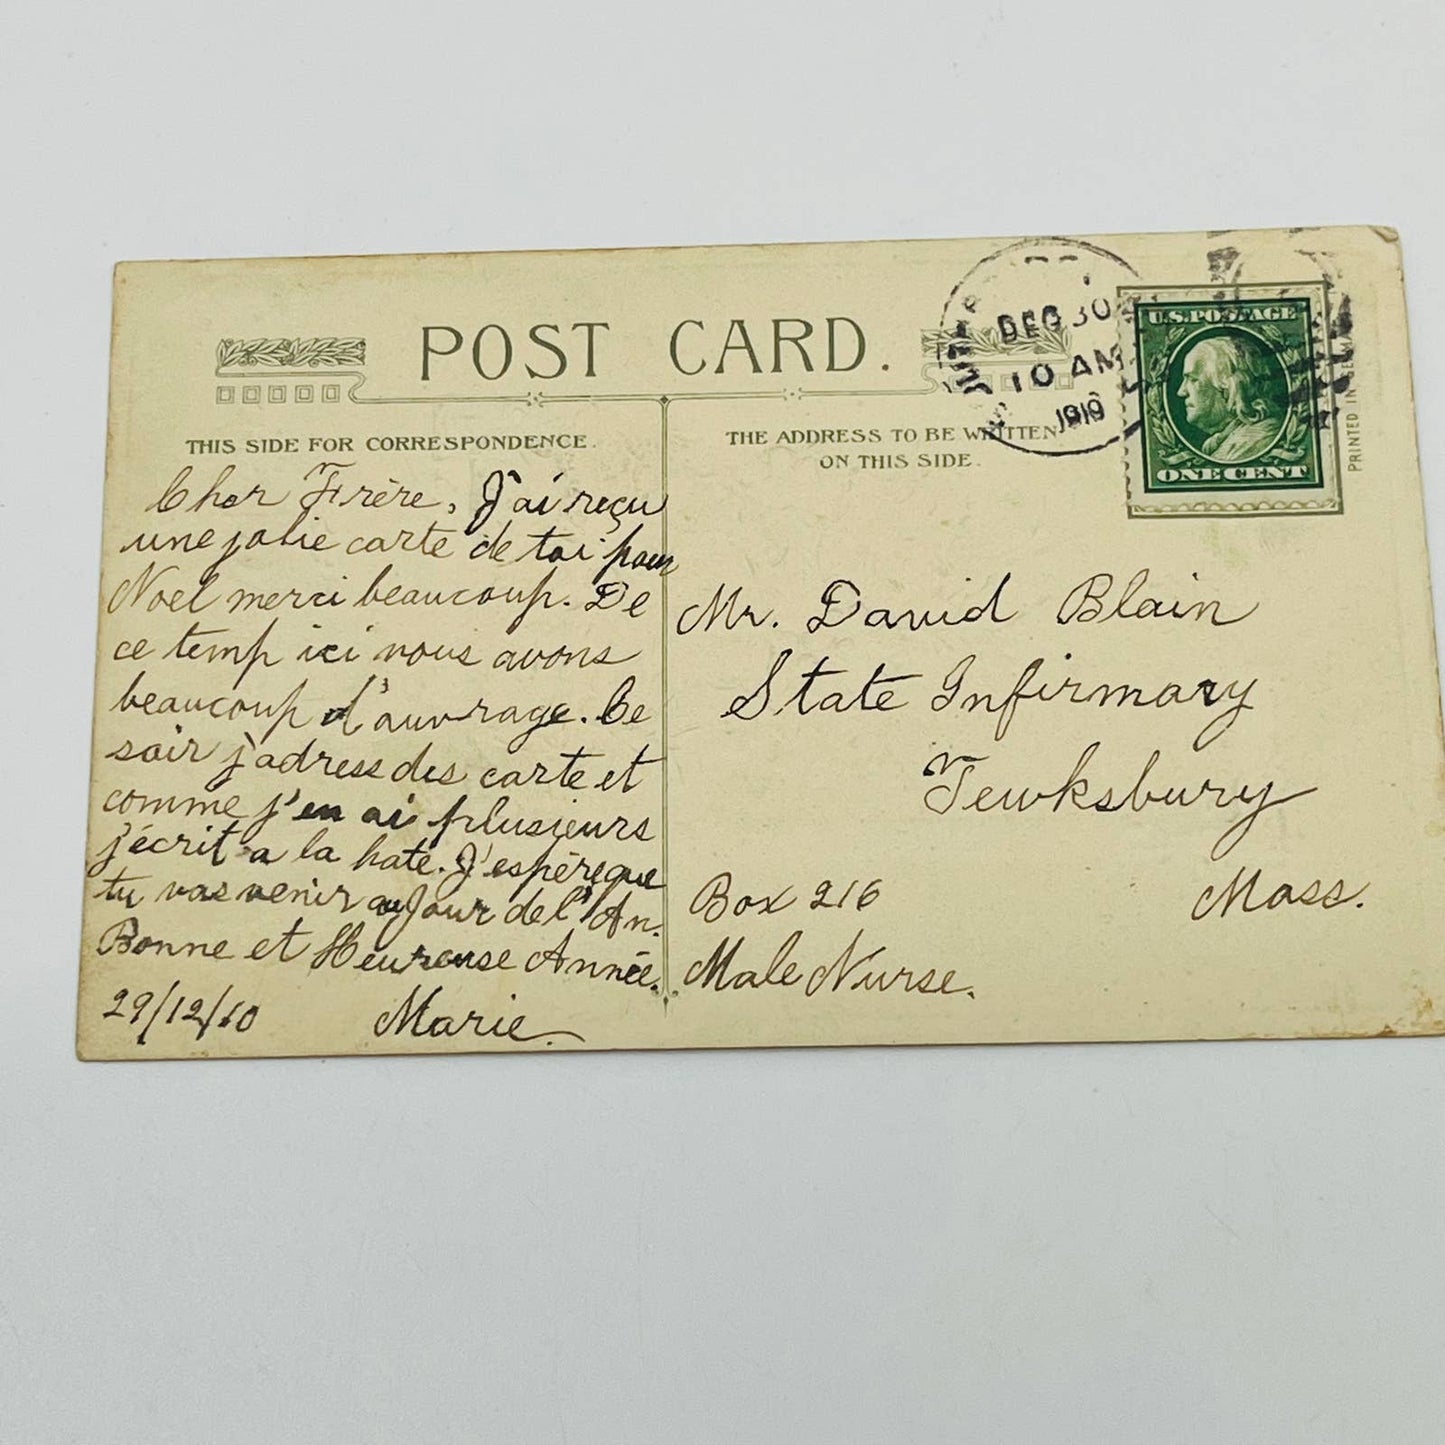 POST CARD.
THIS SIDE FOR CORRESPONDENCE.
Cher Frère, J'ai reçu
une jolie carte de toi pour
Noel merci beaucoup. De
ce temp ici nous avons
beaucoup d'auvrage. Ce
soir j'adress des carte et
comme j'en ai plusieurs
j'écrit a la hate. J'espère que
tu vas venir au Jour de l'An.
Bonne et Heureuse Année.
29/12/10 Marie.
THE ADDRESS TO BE WRITTEN
ON THIS SIDE.
DEC 30
10 AM
1910
U.S. POSTAGE
ONE CENT
PRINTED IN
Mr. David Blain
State Infirmary
Tewksbury
Mass.
Box 216
Male Nurse.